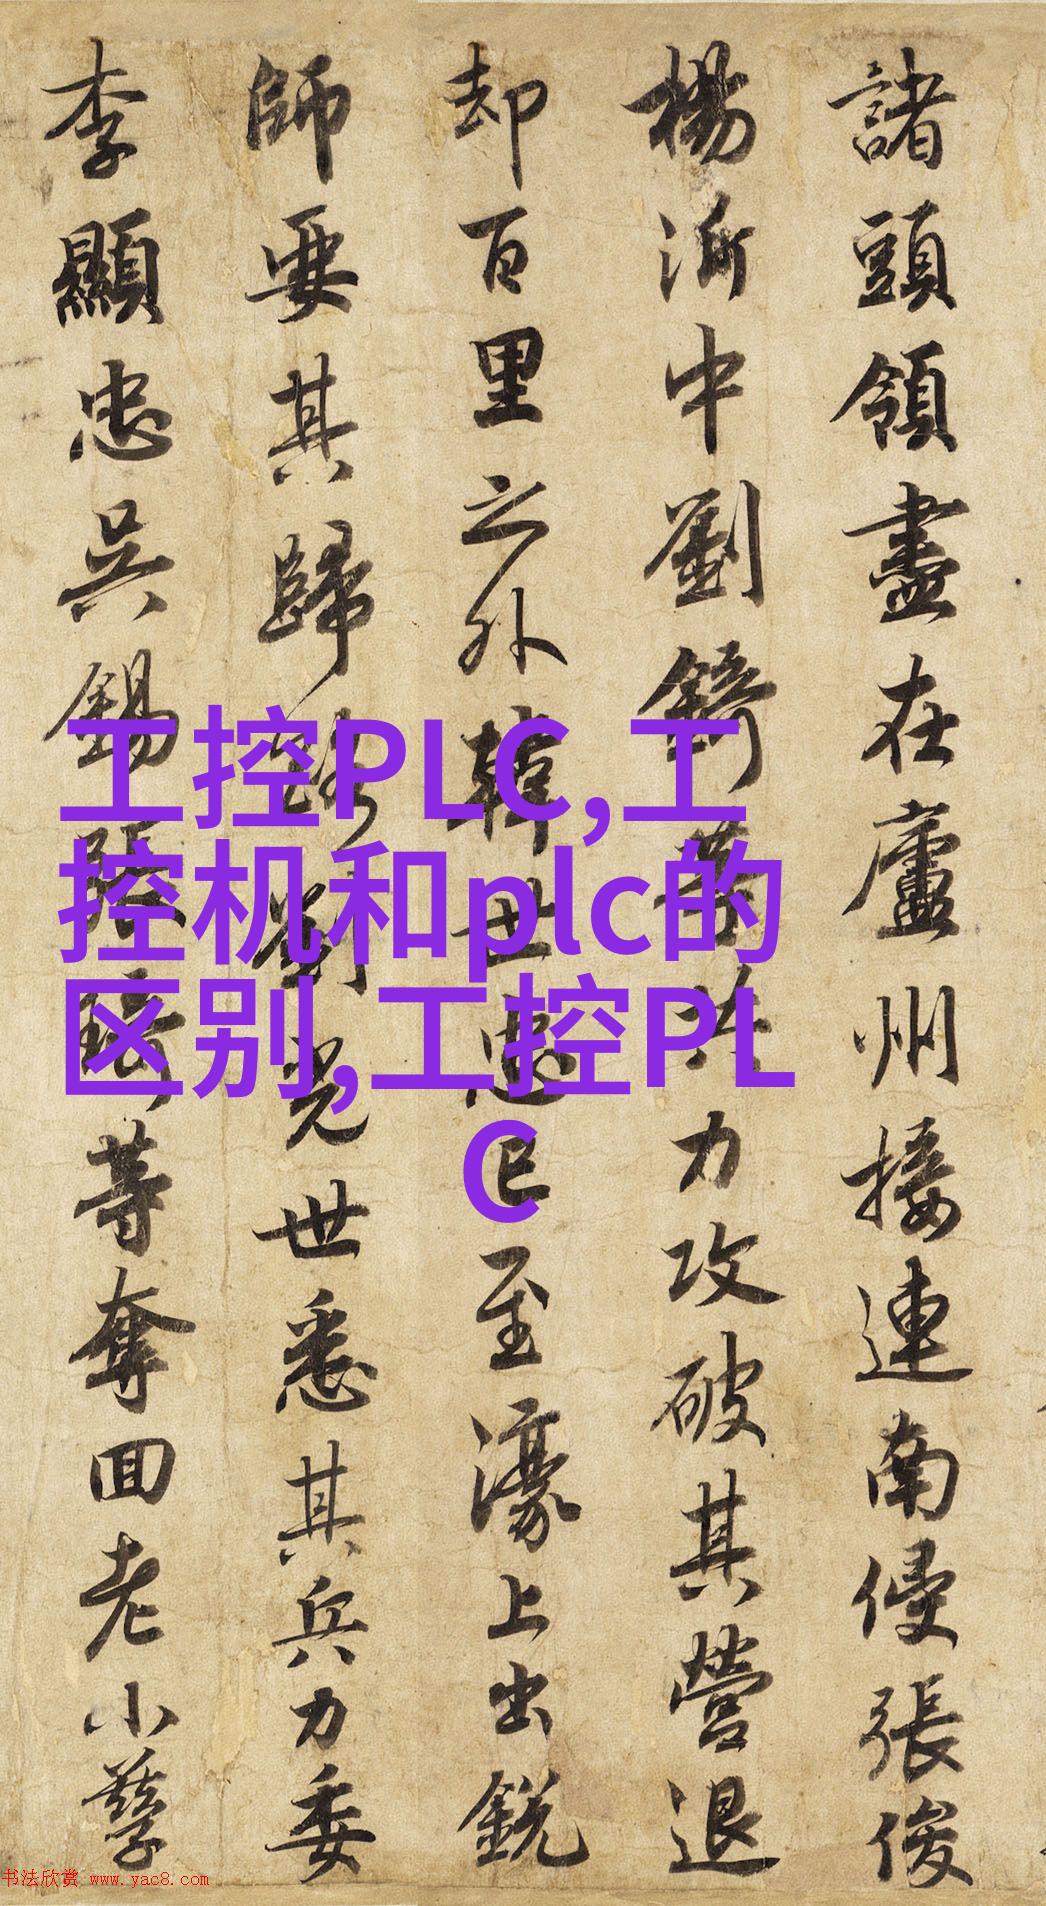 諸頭領盡在廬州接連南侵張俊
楊沂中劉錡等共力攻破其營退
却百里之外韓世忠已至濠上出銳
師要其歸路劉光世悉其兵力委
李顯忠吳錫張琦等奪回老小孳
工控PLC,工
控机和plc的
区别,工控PL
C
书法欣赏 www.yac8.com